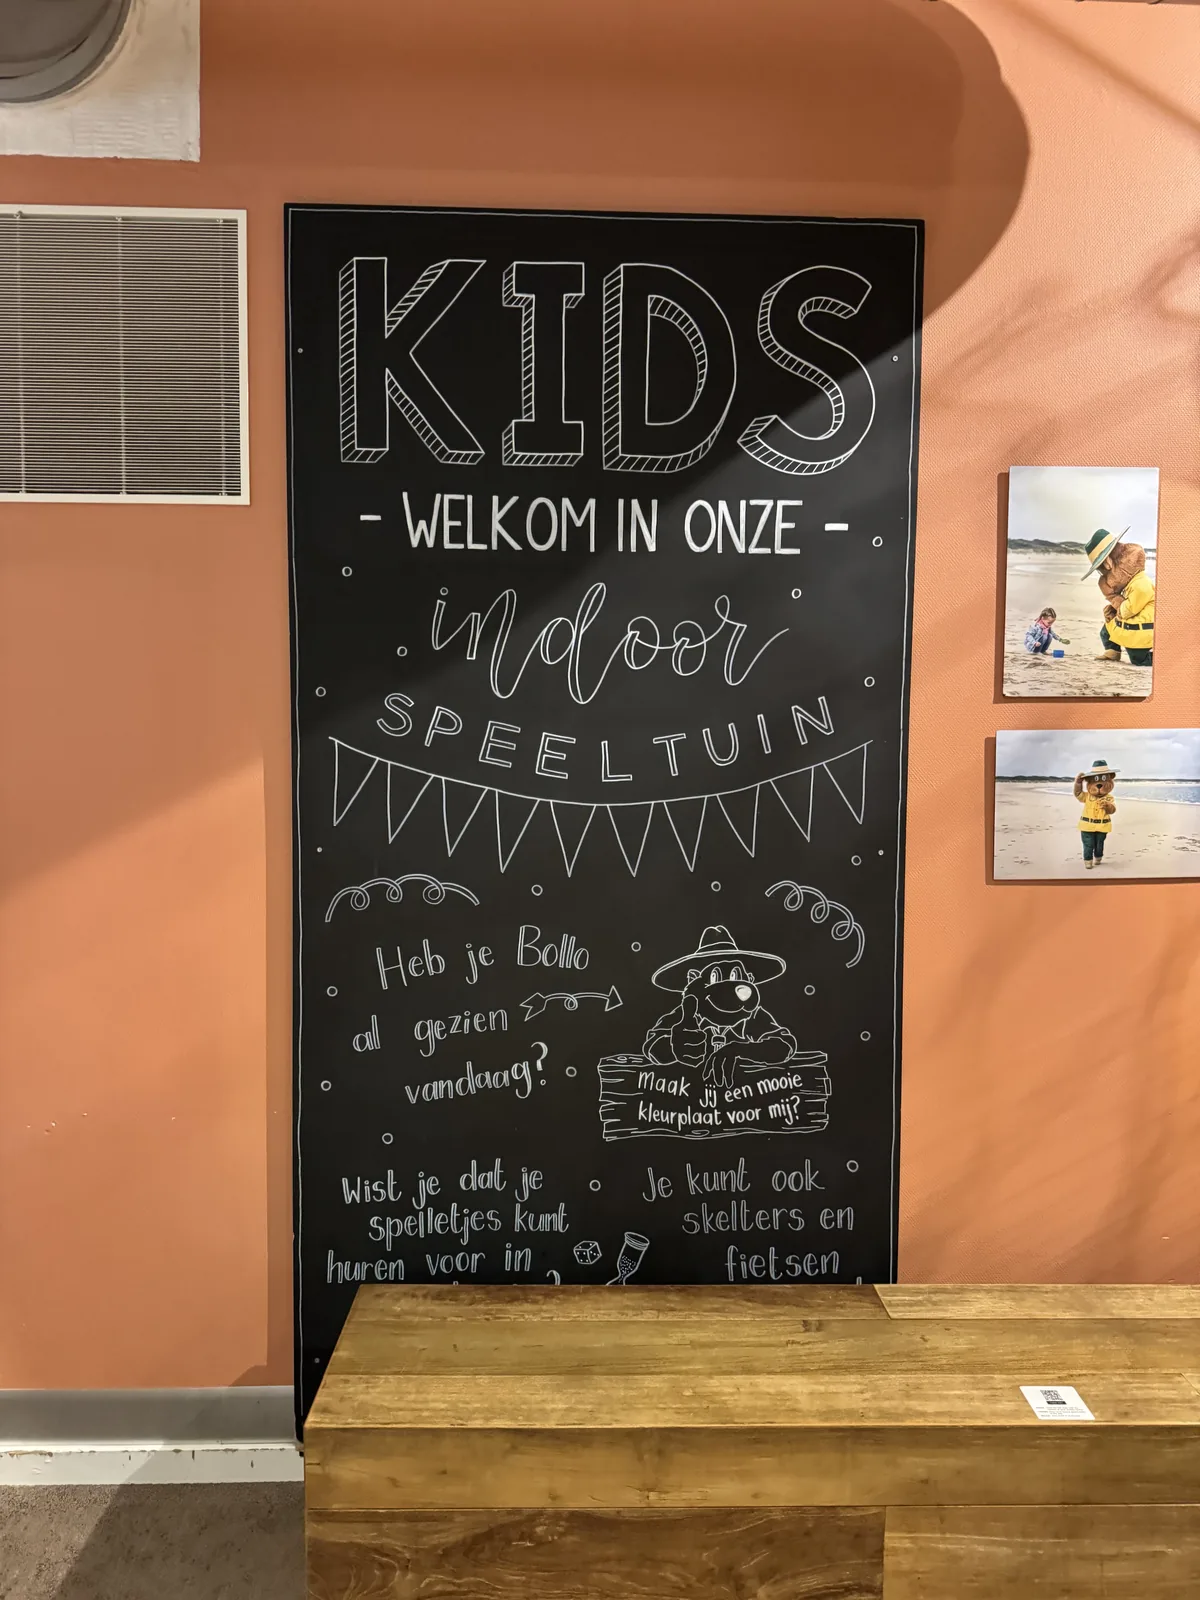 KIDS
- WELKOM IN ONZE -
indoor
SPEELTUIN
Heb je Bollo
al gezien
vandaag?
Maak jij een mooie
kleurplaat voor mij?
Wist je dat je
spelletjes kunt
huren voor in
Je kunt ook
skelters en
fietsen